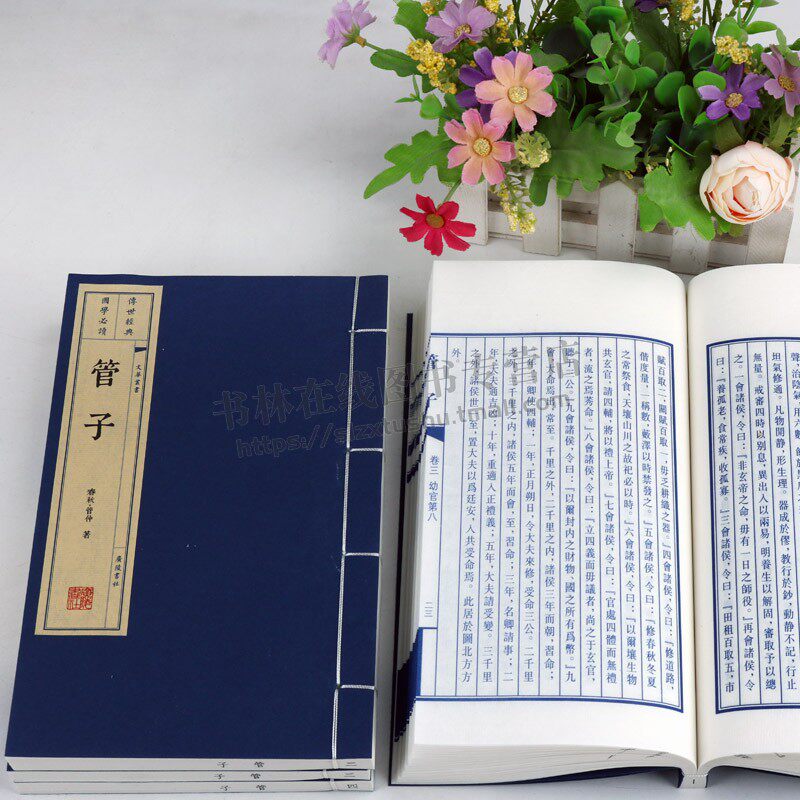 傳世經典
國學必讀
文華叢書
管子
春秋·管仲 著
廣陵書社
管子 二
管子 三
管子 四
聲,治陰氣,用六數,飲於黑
坦氣修通。凡物開靜,形生理。器成於僇,教行於鈔,動靜不記,行止
無量。戒審四時以別息,異出入以兩易,明養生以解固,審取予以總
之。一會諸侯,令曰:『非玄帝之命,毋有一日之師役。』再會諸侯,令
曰:『養孤老,食常疾,收孤寡。』三會諸侯,令曰:『田租百取五,市
賦百取二,關賦百取一,毋乏耕織之器。』四會諸侯,令曰:『修道路,
偕度量,一稱數,藪澤以時禁發之。』五會諸侯,令曰:『修春秋冬夏
之常祭食,天壤山川之故祀必以時。』六會諸侯,令曰:『以爾壤生物
共玄官,請四輔,將以禮上帝。』七會諸侯,令曰:『官處四體而無禮
者,流之焉莠命。』八會諸侯,令曰:『立四義而毋議者,尚之于玄官,
聽于三公。』九會諸侯,令曰:『以爾封内之財物、國之所有爲幣。』九
會,大命焉出,常至。千里之外,二千里之内,諸侯三年而朝,習命;
二年,三卿使四輔;一年,正月朔日,令大夫來修,受命三公。二千里
之外,三千里之内,諸侯五年而會,至,習命;三年,名卿請事;二
年,大夫通吉凶;十年,重適入,正禮義;五年,大夫請受變。三千里
之外,諸侯世一至,置大夫以爲廷安,入共受命焉。此居於圖北方方
外。
卷三 幼官第八
二三
书林在线图书专营店
https://slzxtushu.tmall.com